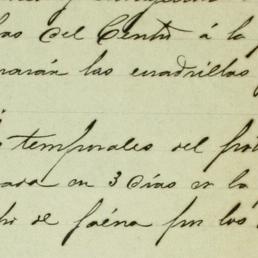 las del Centro á la p
marán las cuadrillas
temporales del pró
sada en 3 dias en la
po de faéna por los